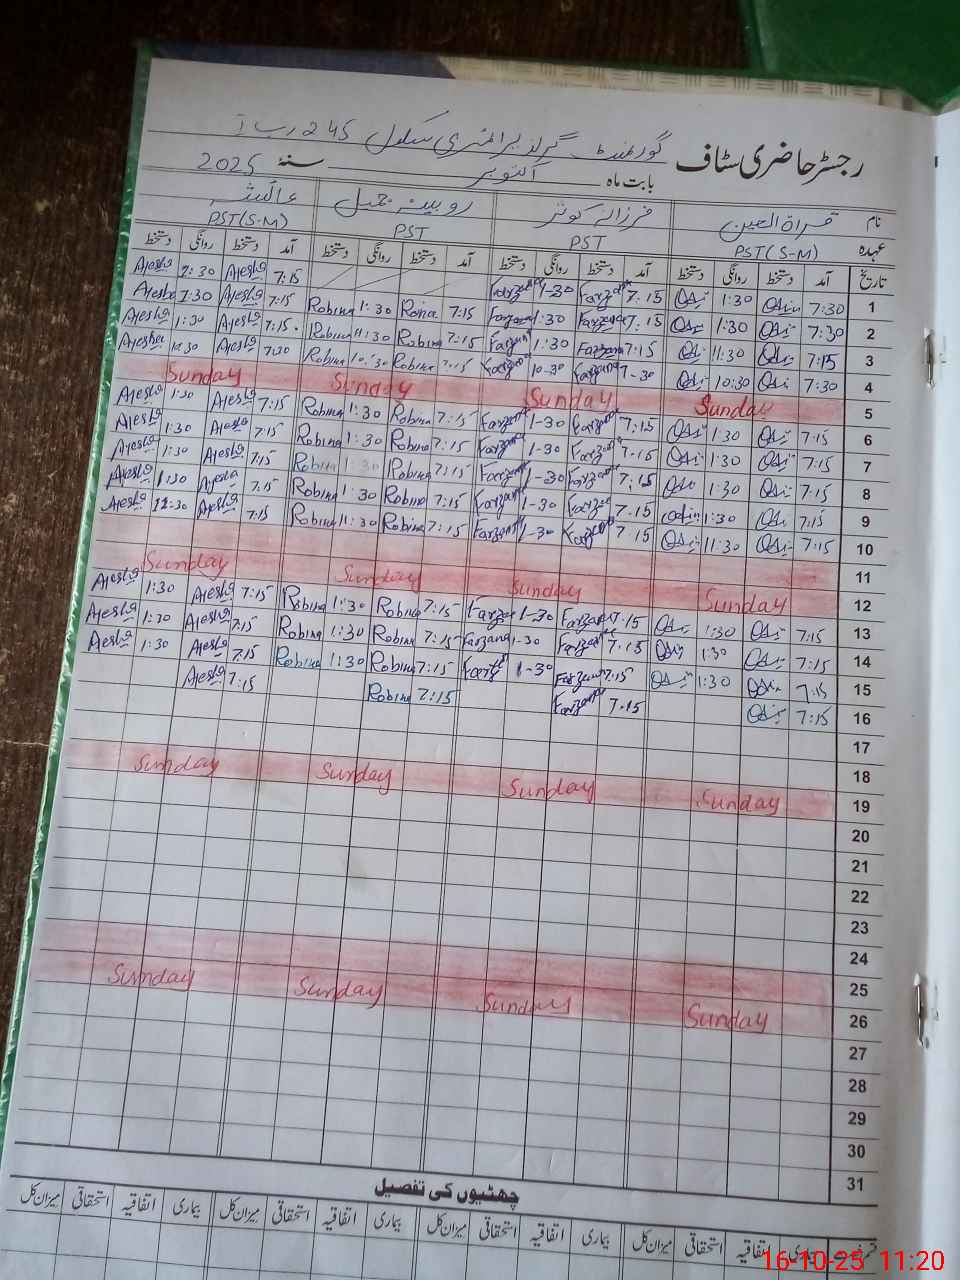 رجسٹر حاضری سٹاف گورنمنٹ گرلز پرائمری سکول 245 رب
بابت ماہ اکتوبر سنہ 2025
نام قراۃ العین فرزانہ کوثر روبینہ جمیل عائشہ
عہدہ PST(S-M) PST PST PST(S-M)
تاریخ آمد دستخط روانگی دستخط آمد دستخط روانگی دستخط آمد دستخط روانگی دستخط آمد دستخط روانگی دستخط
1 7:30 1:30 7.15 Farzana 1-30 Farzana 7:15 Ayesha 7:30 Ayesha
2 7:30 1:30 7.15 Farzana 1:30 Farzana 7:15 Robina 1:30 Robina 7:15 Ayesha 7:30 Ayesha
3 7:15 11:30 7:15 Farzana 1:30 Farzana 7:15 Robina 11:30 Robina 7:15 Ayesha Ayesha
4 7:30 10:30 7-30 Farzana 10-30 Farzana 7:15 Robina 10:30 Robina 7:30 Ayesha Ayesha
5 Sunday Sunday Sunday Sunday
6 7:15 1:30 7:15 Farzana 1-30 Farzana 7:15 Robina 1:30 Robina 7:15 Ayesha 1:30 Ayesha
7 7:15 1:30 7.15 Farzana 1-30 Farzana 7:15 Robina 1:30 Robina 7:15 Ayesha 1:30 Ayesha
8 7:15 1:30 7.15 Farzana 1-30 Farzana 7:15 Robina 1:30 Robina 7:15 Ayesha 1:30 Ayesha
9 7:15 1:30 7.15 Farzana 1-30 Farzana 7:15 Robina 1:30 Robina 7:15 Ayesha 1:30 Ayesha
10 7:15 11:30 7.15 Farzana 1-30 Farzana 7:15 Robina 11:30 Robina 7:15 Ayesha 12:30 Ayesha
11
12 Sunday Sunday Sunday Sunday
13 7:15 1:30 7.15 Farzana 1-30 Farzana 7:15 Robina 1:30 Robina 7:15 Ayesha 1:30 Ayesha
14 7:15 1:30 7.15 Farzana 1-30 Farzana 7:15 Robina 1:30 Robina 7:15 Ayesha 1:30 Ayesha
15 7:15 1:30 7:15 Farzana 1-30 Farzana 7:15 Robina 1:30 Robina 7:15 Ayesha 1:30 Ayesha
16 7:15 7.15 Farzana 7:15 Robina 7:15 Ayesha
17
18
19 Sunday Sunday Sunday Sunday
20
21
22
23
24
25
26 Sunday Sunday Sunday Sunday
27
28
29
30
31
چھٹیوں کی تفصیل
بیماری اتفاقیہ استحقاقی میزان کل بیماری اتفاقیہ استحقاقی میزان کل بیماری اتفاقیہ استحقاقی میزان کل بیماری اتفاقیہ استحقاقی میزان کل
16-10-25 11:20